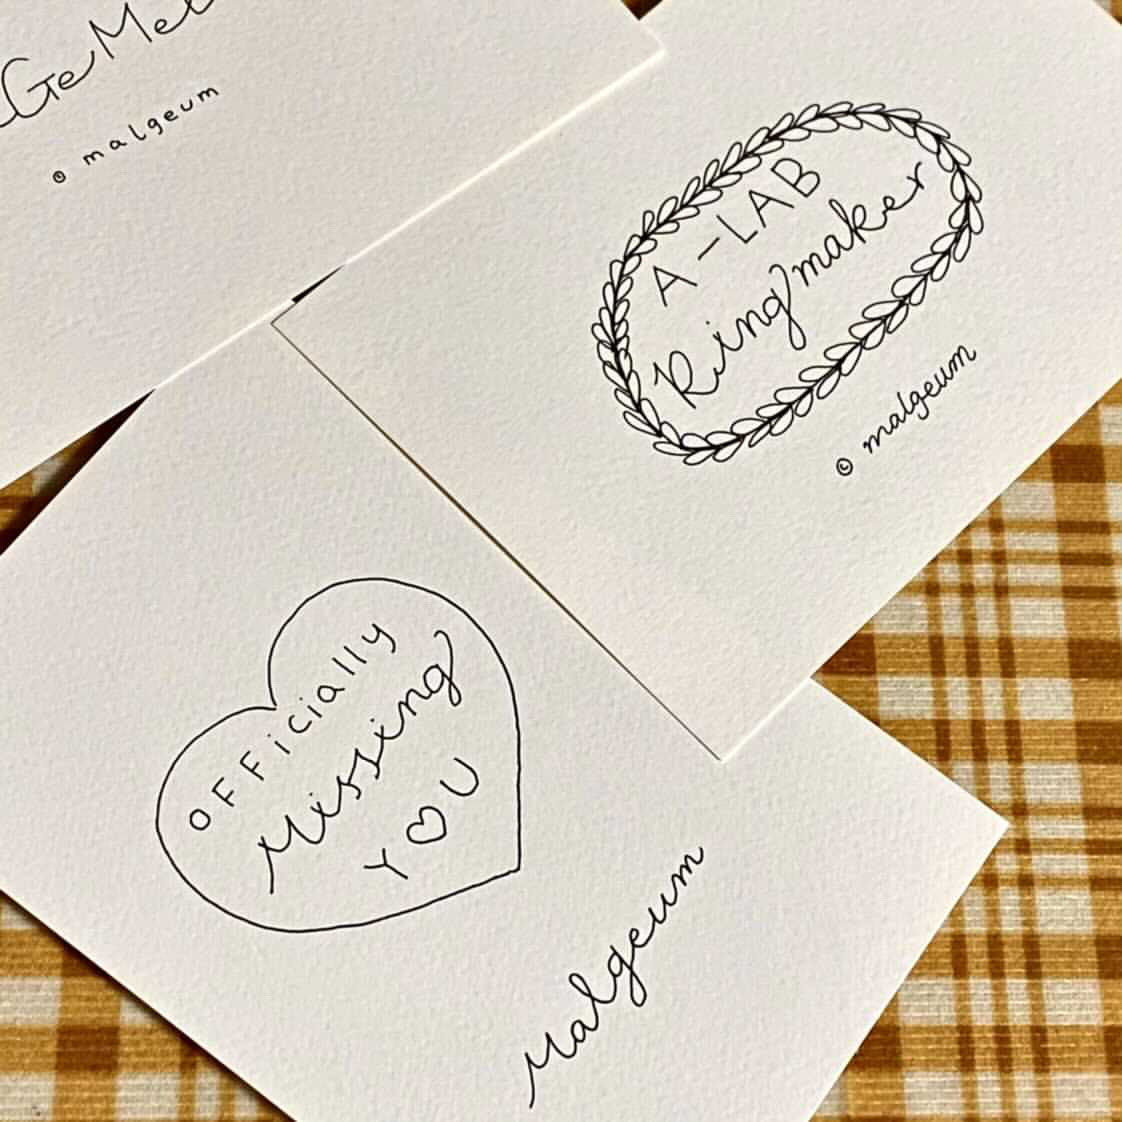 © malgeum
A-LAB
Ringmaker
© malgeum
OFFicially
Missing
YOU
Malgeum